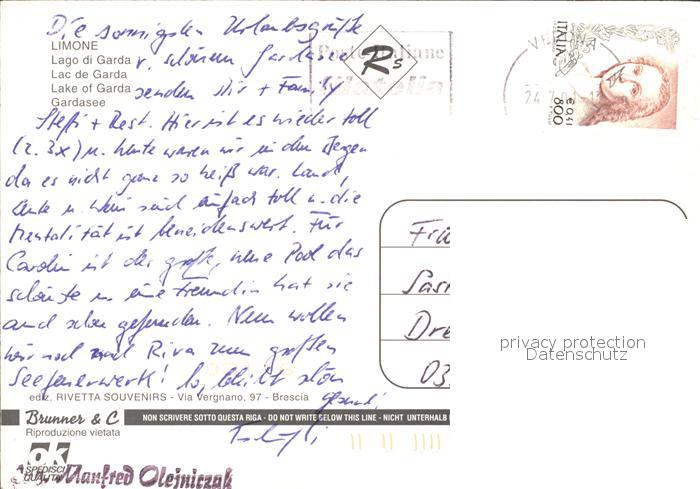 Die sonnigsten Urlaubsgrüße
LIMONE
Lago di Garda v. schönen Gardasee
Lac de Garda
Lake of Garda senden dir + Family
Gardasee
Steffi + Rest. Hier ist es wieder toll
(2. 3x) u. heute waren wir in den Bergen
da es nicht ganz so heiß war. Land,
Leute u. Wein sind einfach toll u. die
Mentalität ist beneidenswert. Für
Carolin ist der große, neue Pool das
schönste u. eine Freundin hat sie
auch schon gefunden. Nun wollen
wir noch nach Riva zum großen
Seefeuerwerk! So, bleibt schön
gesund!
ediz. RIVETTA SOUVENIRS - Via Vergnano, 97 - Brescia
Brunner & C
NON SCRIVERE SOTTO QUESTA RIGA - DO NOT WRITE BELOW THIS LINE - NICHT UNTERHALB
Riproduzione vietata
ok
SPEDISCI
QUALITÀ
Manfred Olejniczak
Poste Italiane
filatelia
Rs
ITALIA
800
€ 0,41
Fra
Dre
03
privacy protection
Datenschutz